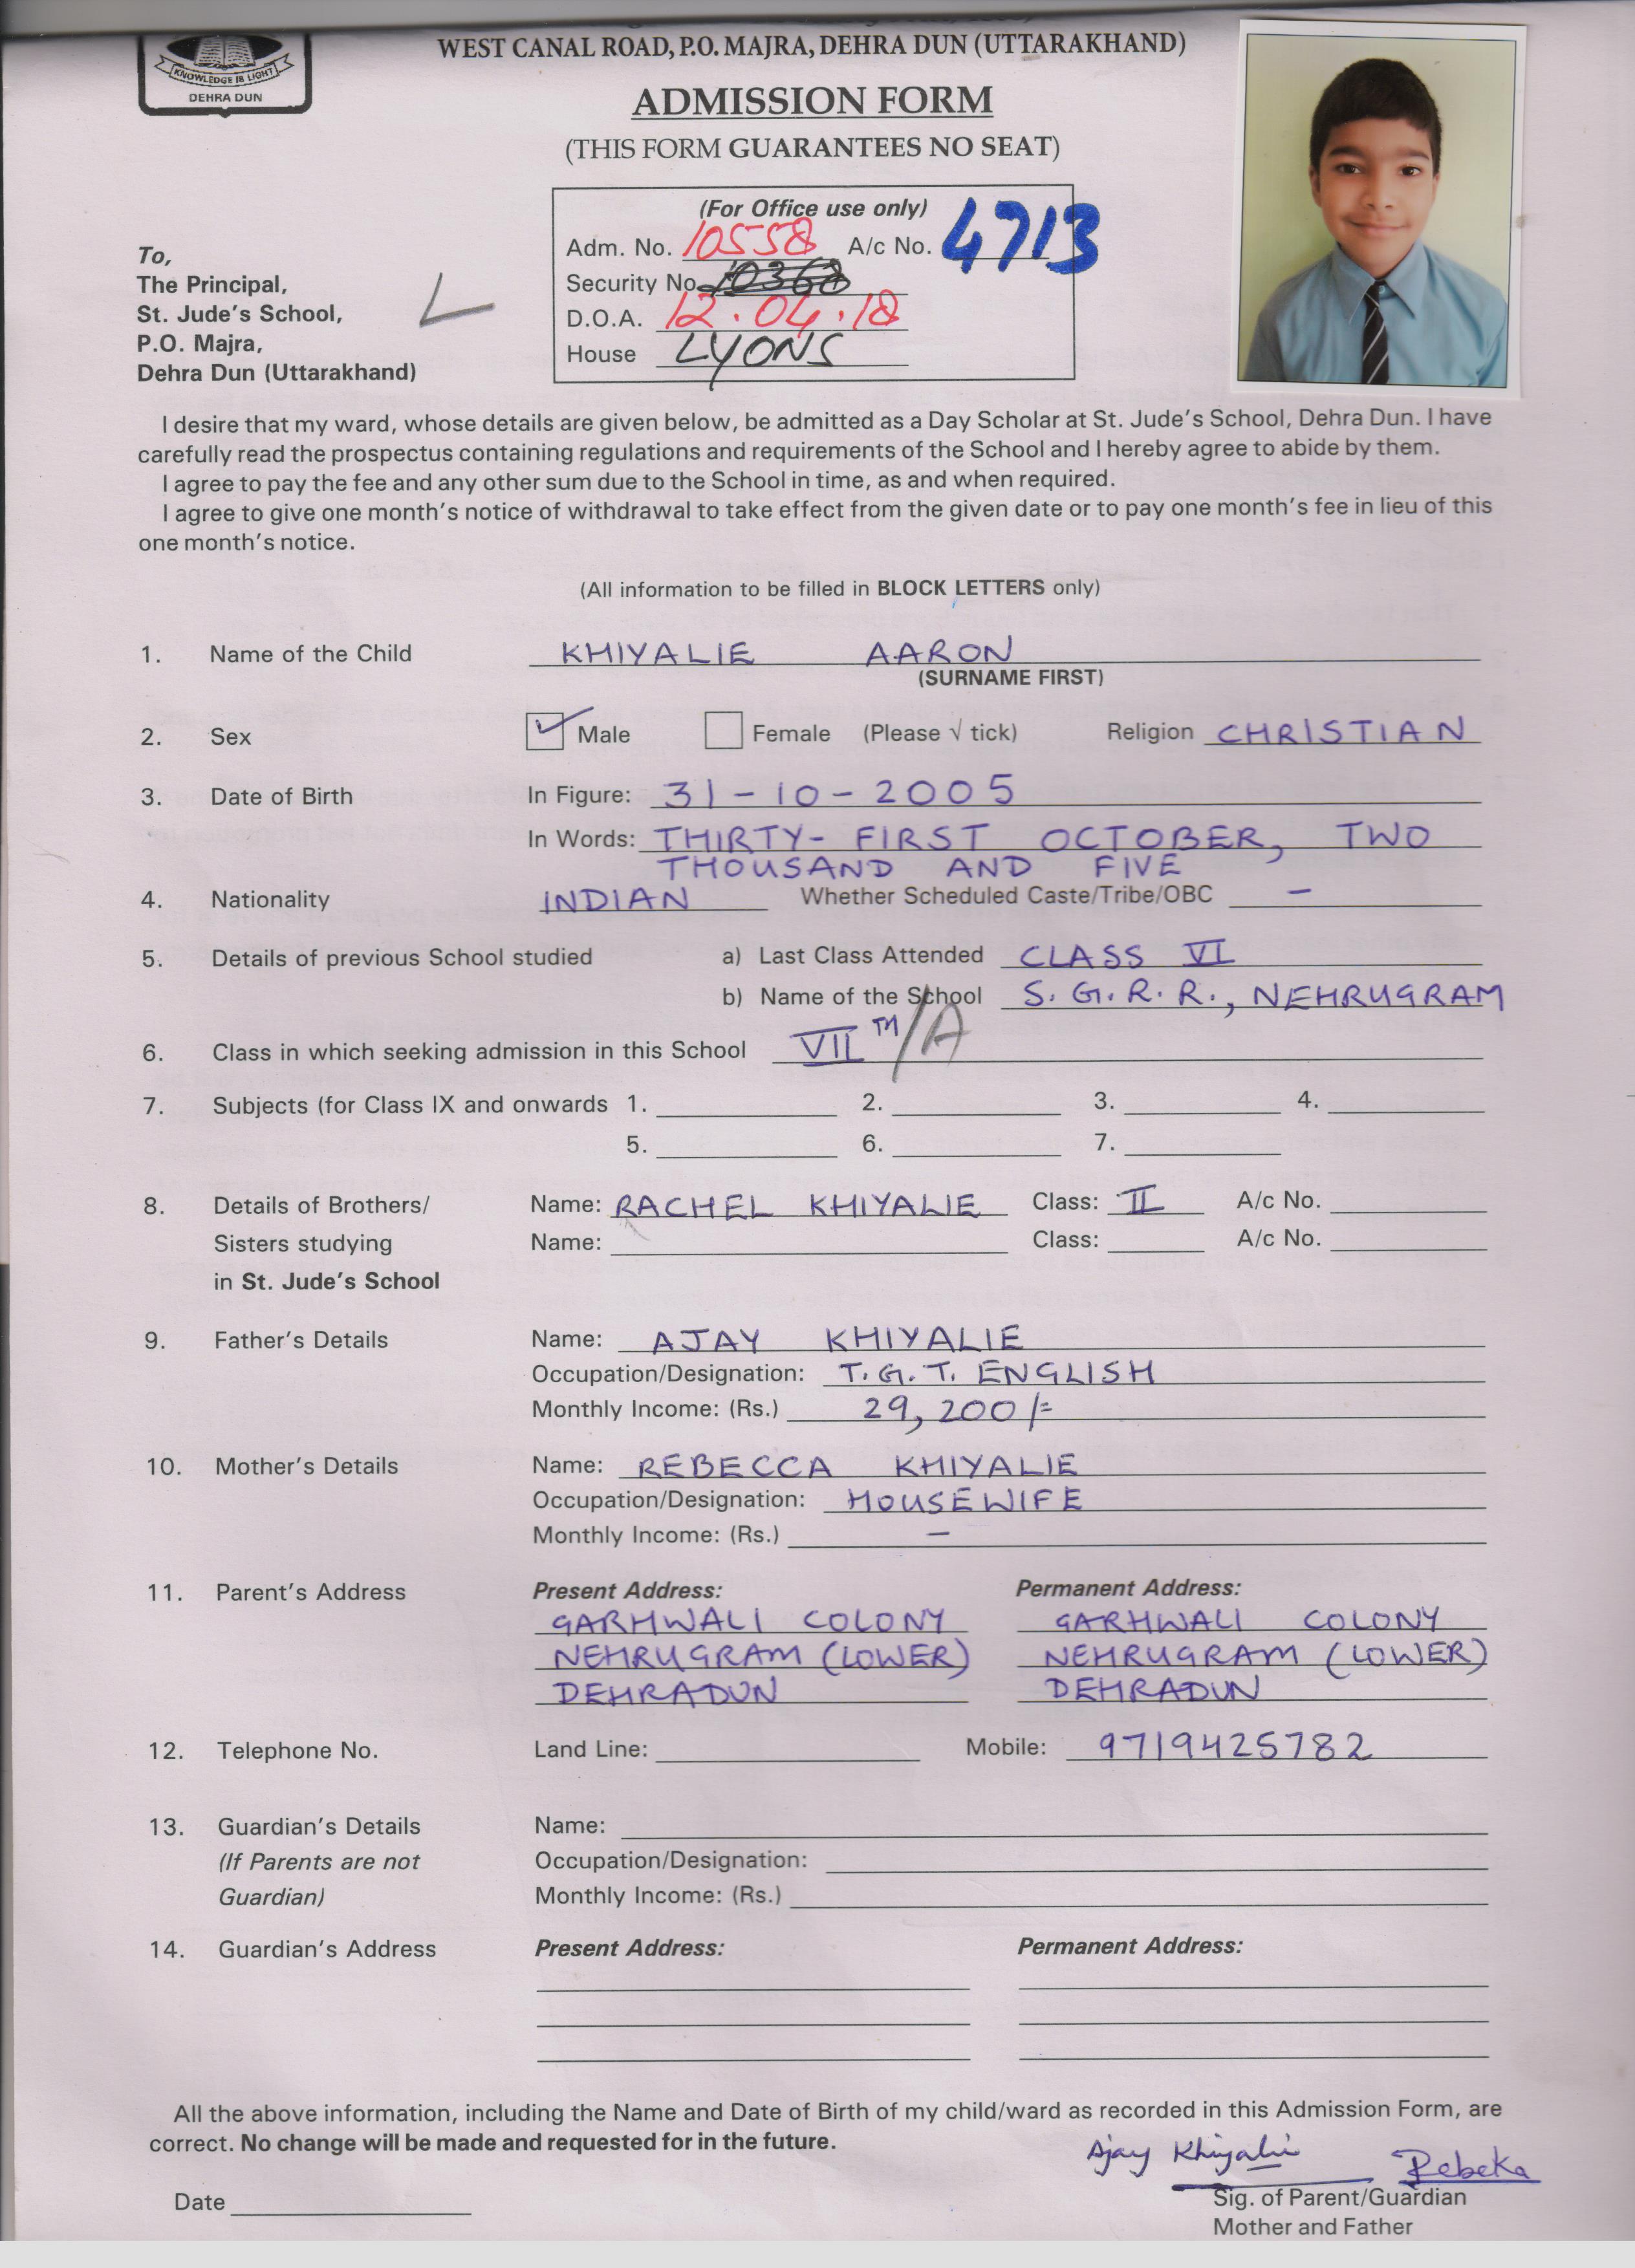 WEST CANAL ROAD, P.O. MAJRA, DEHRA DUN (UTTARAKHAND)
KNOWLEDGE IS LIGHT
DEHRA DUN
ADMISSION FORM
(THIS FORM GUARANTEES NO SEAT)
(For Office use only)
Adm. No. 10558 A/c No. 4713
Security No. 10368
D.O.A. 12.04.18
House LYONS
To,
The Principal,
St. Jude's School,
P.O. Majra,
Dehra Dun (Uttarakhand)
I desire that my ward, whose details are given below, be admitted as a Day Scholar at St. Jude's School, Dehra Dun. I have
carefully read the prospectus containing regulations and requirements of the School and I hereby agree to abide by them.
I agree to pay the fee and any other sum due to the School in time, as and when required.
I agree to give one month's notice of withdrawal to take effect from the given date or to pay one month's fee in lieu of this
one month's notice.
(All information to be filled in BLOCK LETTERS only)
1. Name of the Child KHIYALIE AARON
(SURNAME FIRST)
2. Sex Male Female (Please √ tick) Religion CHRISTIAN
3. Date of Birth In Figure: 31-10-2005
In Words: THIRTY-FIRST OCTOBER, TWO
THOUSAND AND FIVE
4. Nationality INDIAN Whether Scheduled Caste/Tribe/OBC –
5. Details of previous School studied a) Last Class Attended CLASS VI
b) Name of the School S. G. R. R., NEHRUGRAM
6. Class in which seeking admission in this School VII TH/A
7. Subjects (for Class IX and onwards 1. 2. 3. 4.
5. 6. 7.
8. Details of Brothers/ Name: RACHEL KHIYALIE Class: II A/c No.
Sisters studying Name: Class: A/c No.
in St. Jude's School
9. Father's Details Name: AJAY KHIYALIE
Occupation/Designation: T.G.T. ENGLISH
Monthly Income: (Rs.) 29,200/=
10. Mother's Details Name: REBECCA KHIYALIE
Occupation/Designation: HOUSEWIFE
Monthly Income: (Rs.) –
11. Parent's Address Present Address: Permanent Address:
GARHWALI COLONY GARHWALI COLONY
NEHRUGRAM (LOWER) NEHRUGRAM (LOWER)
DEHRADUN DEHRADUN
12. Telephone No. Land Line: Mobile: 9719425782
13. Guardian's Details Name:
(If Parents are not Occupation/Designation:
Guardian) Monthly Income: (Rs.)
14. Guardian's Address Present Address: Permanent Address:
All the above information, including the Name and Date of Birth of my child/ward as recorded in this Admission Form, are
correct. No change will be made and requested for in the future.
Ajay Khiyalie Rebeka
Date Sig. of Parent/Guardian
Mother and Father